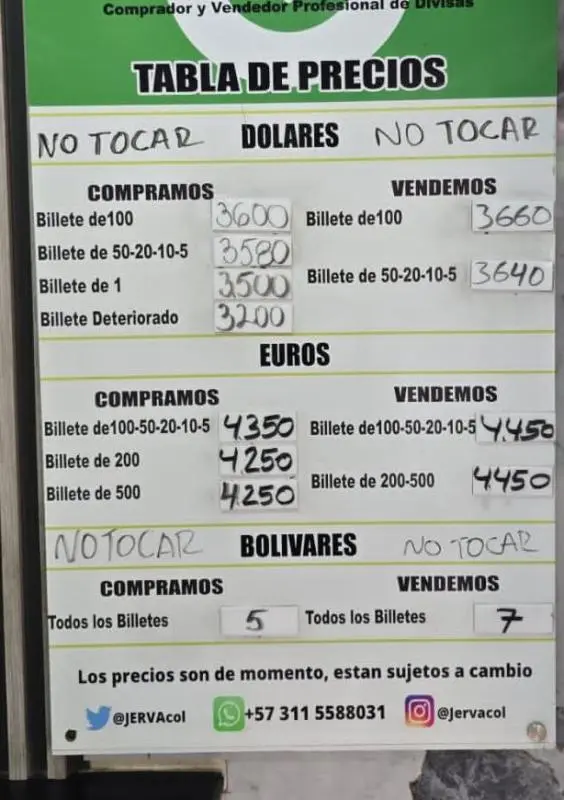 Comprador y Vendedor Profesional de Divisas
TABLA DE PRECIOS
NO TOCAR DOLARES NO TOCAR
COMPRAMOS VENDEMOS
Billete de100 3600 Billete de100 3660
Billete de 50-20-10-5 3580
Billete de 50-20-10-5 3640
Billete de 1 3500
Billete Deteriorado 3200
EUROS
COMPRAMOS VENDEMOS
Billete de100-50-20-10-5 4.350 Billete de100-50-20-10-5 4.450
Billete de 200 4250
Billete de 200-500 4450
Billete de 500 4.250
NO TOCAR BOLIVARES NO TOCAR
COMPRAMOS VENDEMOS
Todos los Billetes 5 Todos los Billetes 7
Los precios son de momento, estan sujetos a cambio
@JERVAcol +57 311 5588031 @Jervacol